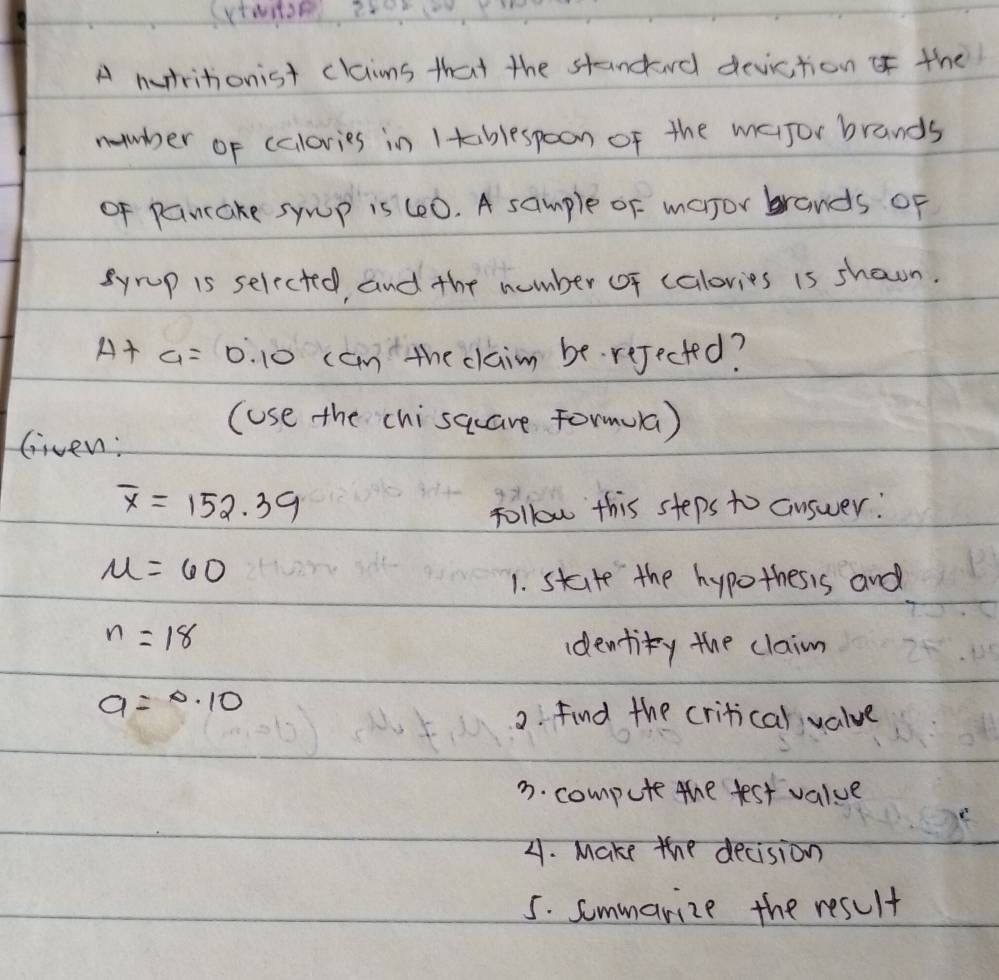 A nutritionist claims that the standard deviation of the
number of calories in 1 tablespoon of the major brands
of pancake syrup is 60. A sample of major brands of
syrup is selected, and the number of calories is shown.
At a = 0.10 can the claim be rejected?
(use the chi square formula)
Given:
x̄ = 152.39
μ = 60
n = 18
a = 0.10
Follow this steps to answer:
1. state the hypothesis and
identify the claim
2. Find the critical value
3. compute the test value
4. Make the decision
5. Summarize the result